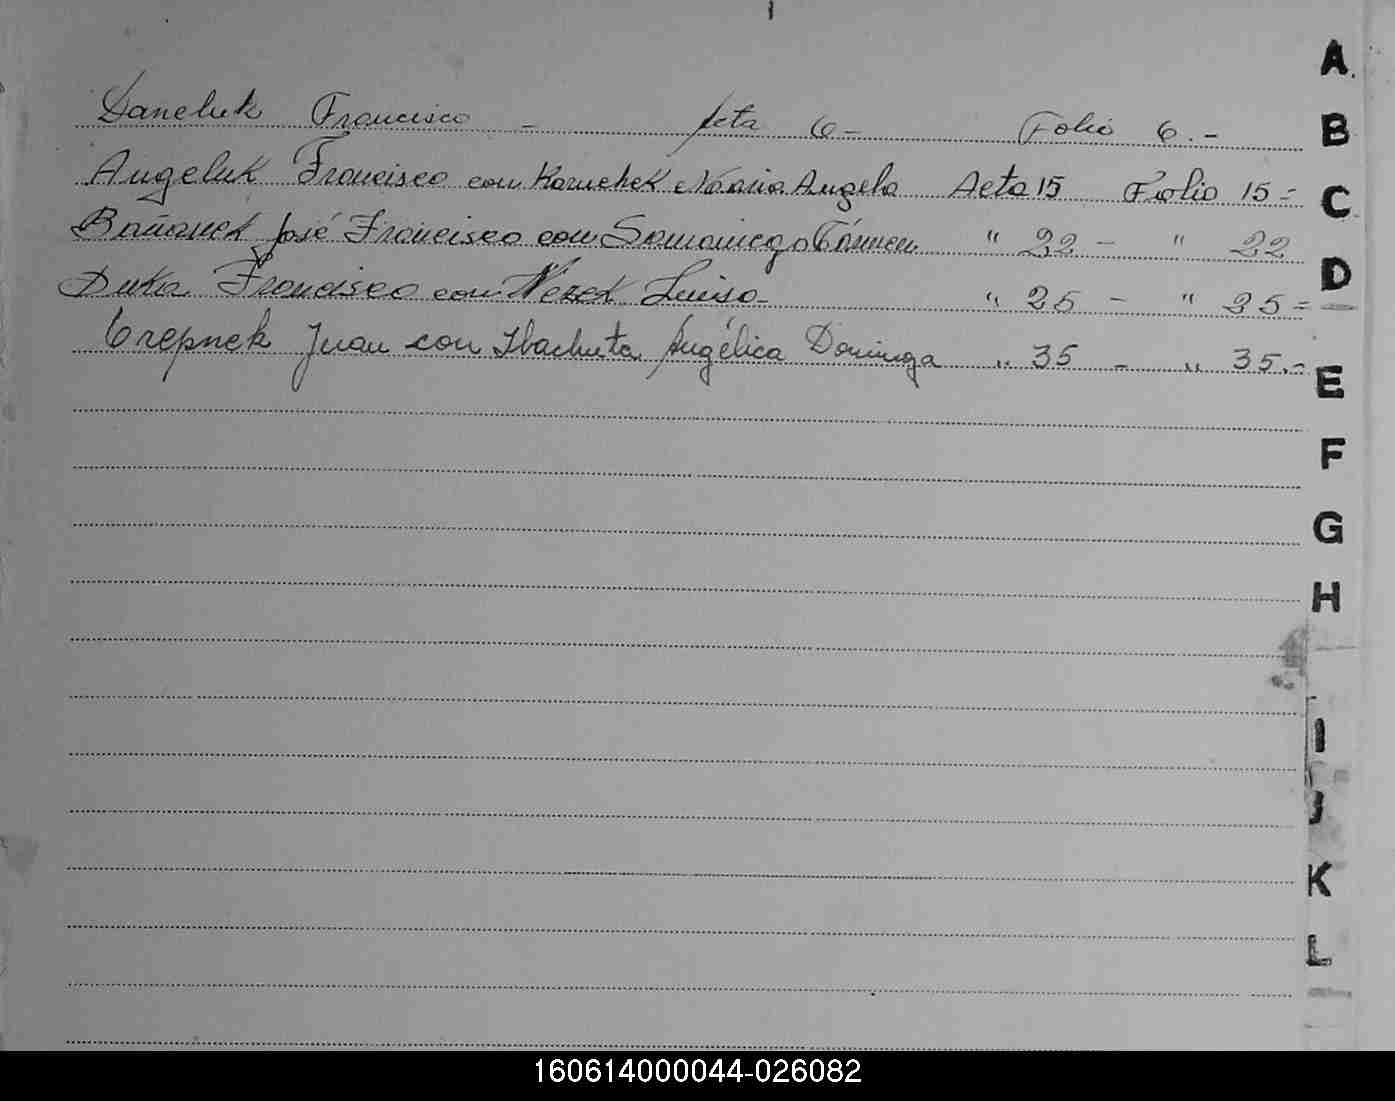 Daneluk Francisco - Acta 6- Folio 6.-
Angeluk Francisco con Karuchek Maria Angela Acta 15 Folio 15=
José Francisco con Samaniego Cármen " 22 - " 22
Duka Francisco con Nezek Luisa - " 25 - " 25=
Crepnek Juan con Angélica Dominga " 35 - " 35.-
A
B
C
D
E
F
G
H
I
J
K
L
160614000044-026082